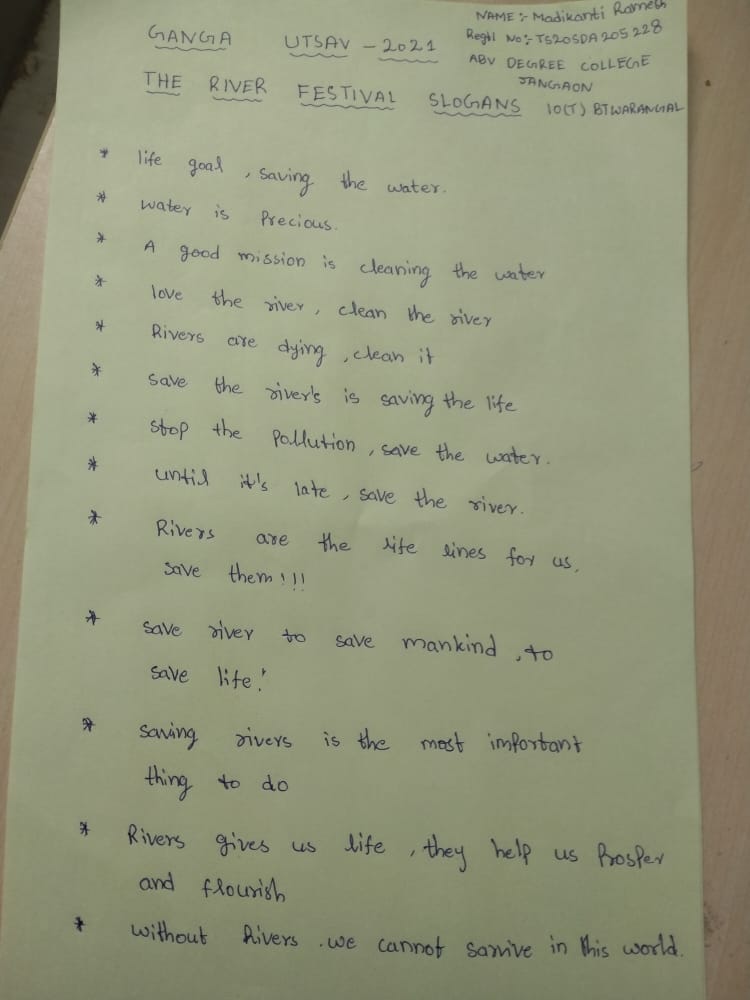 NAME :- Madikanti Ramesh
GANGA UTSAV - 2021
Regtl No :- TS20SDA205228
ABV DEGREE COLLEGE
JANGAON
THE RIVER FESTIVAL SLOGANS
10(T) BTWARANGAL
* life goal, saving the water.
* water is Precious.
* A good mission is cleaning the water
* love the river, clean the river
* Rivers are dying, clean it
* save the river's is saving the life
* stop the Pollution, save the water.
* until it's late, save the river.
* Rivers are the life lines for us,
save them!!!
* save river to save mankind, to
save life!
* saving rivers is the most important
thing to do
* Rivers gives us life, they help us Prosper
and flourish
* without Rivers. we cannot sarvive in this world.